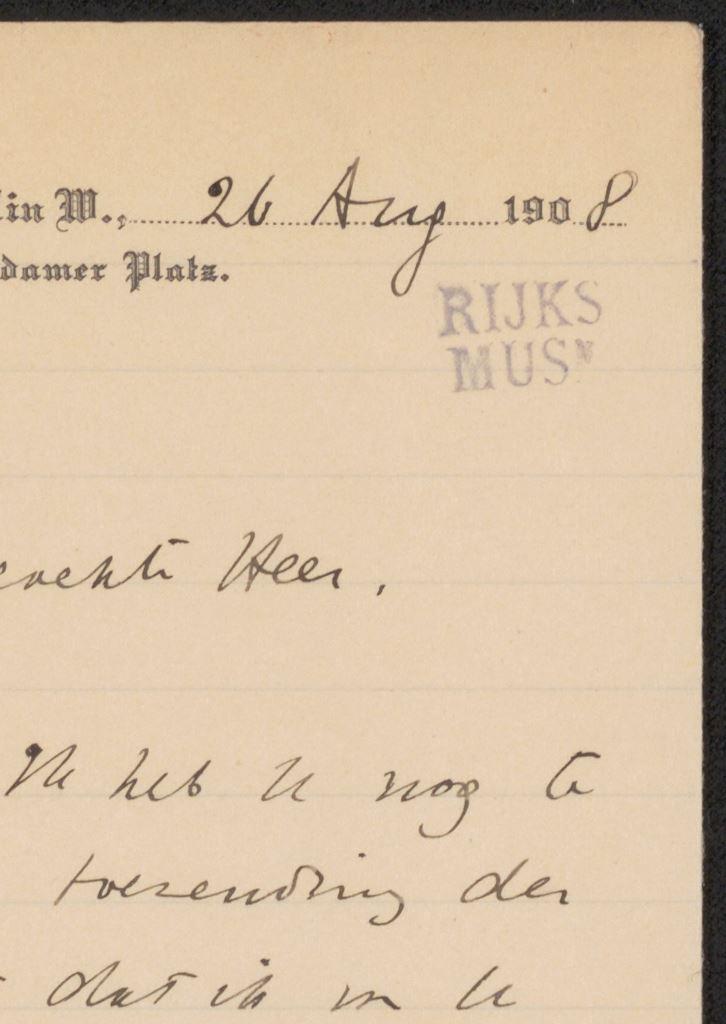 lin W., 26 Aug 1908
damer Platz.
RIJKS
MUSM
Heer,
Ik heb U nog te
toezending der
dat ik in U